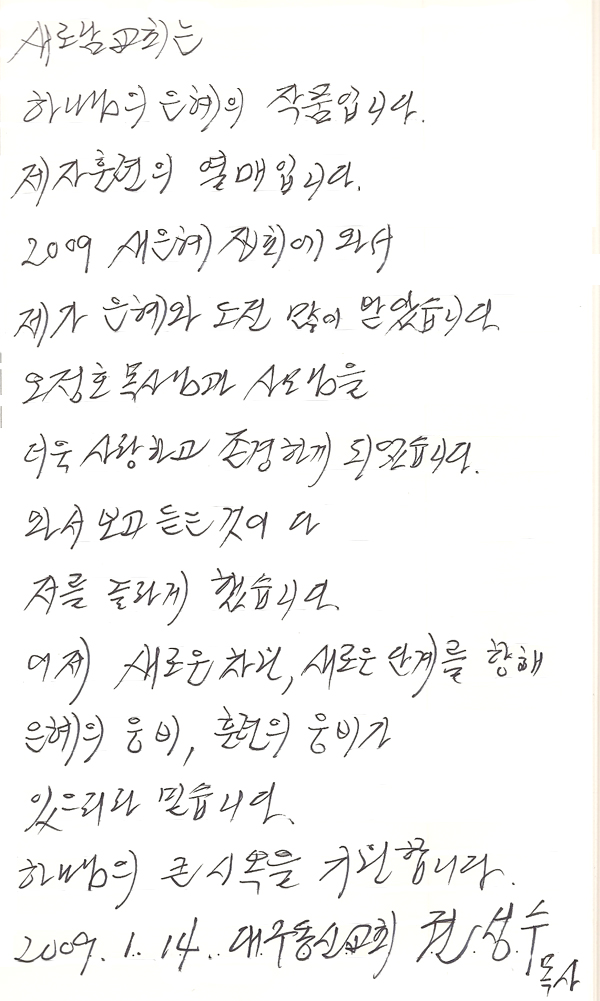 새로남교회는
하나님의 은혜의 작품입니다.
제자훈련의 열매입니다.
2009 새은혜 집회에 와서
제가 은혜와 도전 많이 받았습니다.
오정호 목사님과 사모님을
더욱 사랑하고 존경하게 되었습니다.
와서 보고 듣는 것이 다
저를 놀라게 했습니다.
이제 새로운 차원, 새로운 단계를 향해
은혜의 웅비, 훈련의 웅비가
있으리라 믿습니다.
하나님의 큰 시복을 기원합니다.
2009. 1. 14. 대구동신교회 권성수
목사